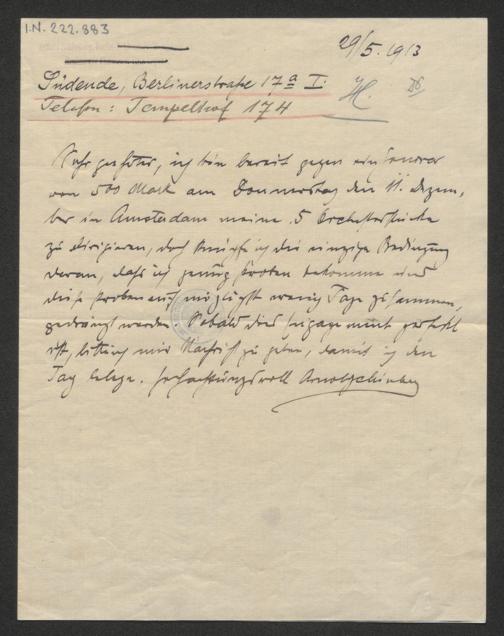 I.N. 222.883
29/5. 1913
Südende, Berlinerstraße 17a I.
Telefon: Tempelhof 174
Sehr geehrter, ich bin bereit gegen ein Honorar
von 500 Mark am Donnerstag den 11. Dezem-
ber in Amsterdam meine 5 Orchesterstücke
zu dirigieren, doch knüpfe ich die einzige Bedingung
daran, daß ich genug Proben bekomme und
diese Proben auf möglichst wenig Tage zusammen-
gedrängt werden. Sobald dies Engagement perfekt
ist, bitte ich mir Nachricht zu geben, damit ich den
Tag belege. Hochachtungsvoll Arnold Schönberg